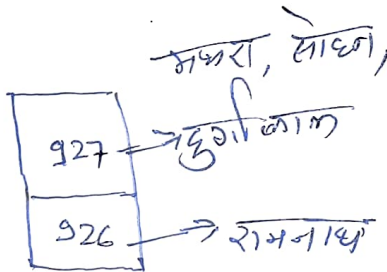 मथरा, सोधन,
927 → दुर्गालाल
926 → रामनाथ